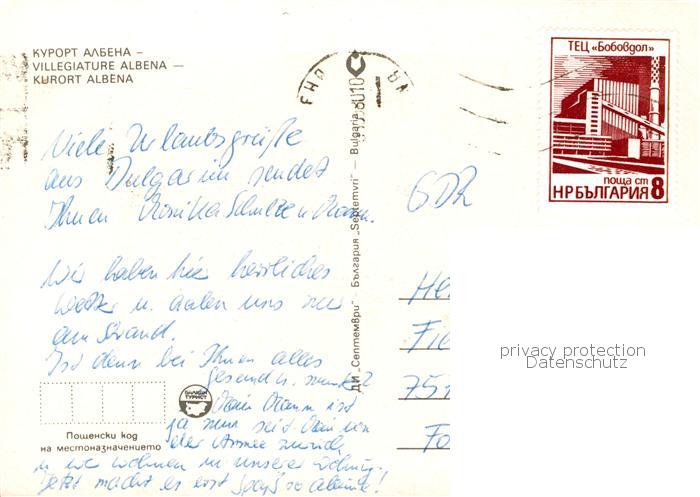 КУРОРТ АЛБЕНА –
VILLEGIATURE ALBENA —
KURORT ALBENA
ТЕЦ «Бобовдол»
поща ст
НРБЪЛГАРИЯ 8
Viele Urlaubsgrüße
aus Bulgarien sendet
Ihnen Monika Schulze u. Mann.
GDR
Wir haben hier herrliches
Wetter u. aalen uns nur
am Strand.
Ist denn bei Ihnen alles
gesund u. munter?
Mein Mann ist
ja nun seit Mai von
der Armee zurück
u. wir wohnen in unserer Wohng.
Jetzt macht es erst Spaß so alleine!
ДИ „Септември" – България „Septemvri" – Bulgaria
8010
БАЛКАН
ТУРИСТ
Пощенски код
на местоназначението
privacy protection
Datenschutz